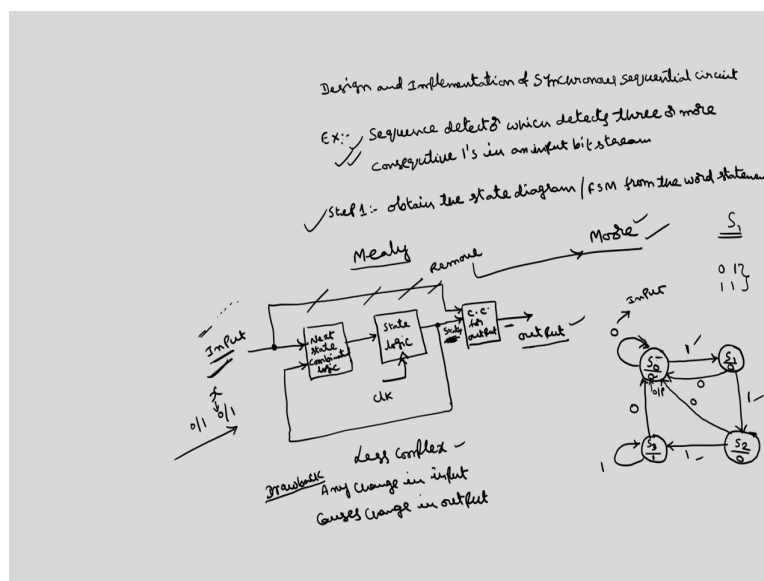 Design and Implementation of Synchronous sequential circuit
Ex:- Sequence detector which detects three or more
consequtive 1's in an input bit stream
Step 1:- obtain the state diagram / FSM from the word stateme
Mealy
Remove
Moore
S1
0 1
1 1
Input
Input
Next state Combinat logic
State logic
State
C.C. for output
output
Clk
x
0/1 0/1
Less Complex
Drawback Any change in input
Causes change in output
0
S0
0
o/p
1
S1
0
0
1
0
S2
0
1
0
S3
1
1